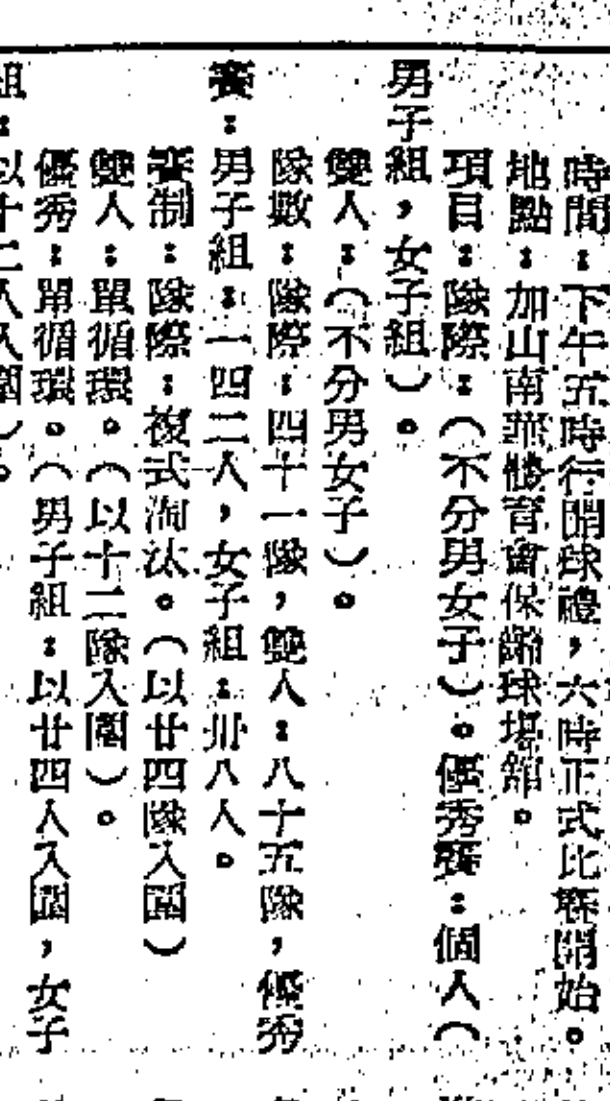 時間：下午五時行開球禮，六時正式比賽開始。
地點：加山南華體育會保齡球場館。
項目：隊際：（不分男女子）。優秀賽：個人（
男子組，女子組）。
雙人：（不分男女子）。
隊數：隊際：四十一隊，雙人：八十五隊，優秀
賽：男子組：一四二人，女子組：卅八人。
賽制：隊際：複式淘汰。（以廿四隊入圍）
雙人：單循環。（以十二隊入圍）。
優秀：單循環。（男子組：以廿四人入圍，女子
組：以十二人入圍）。